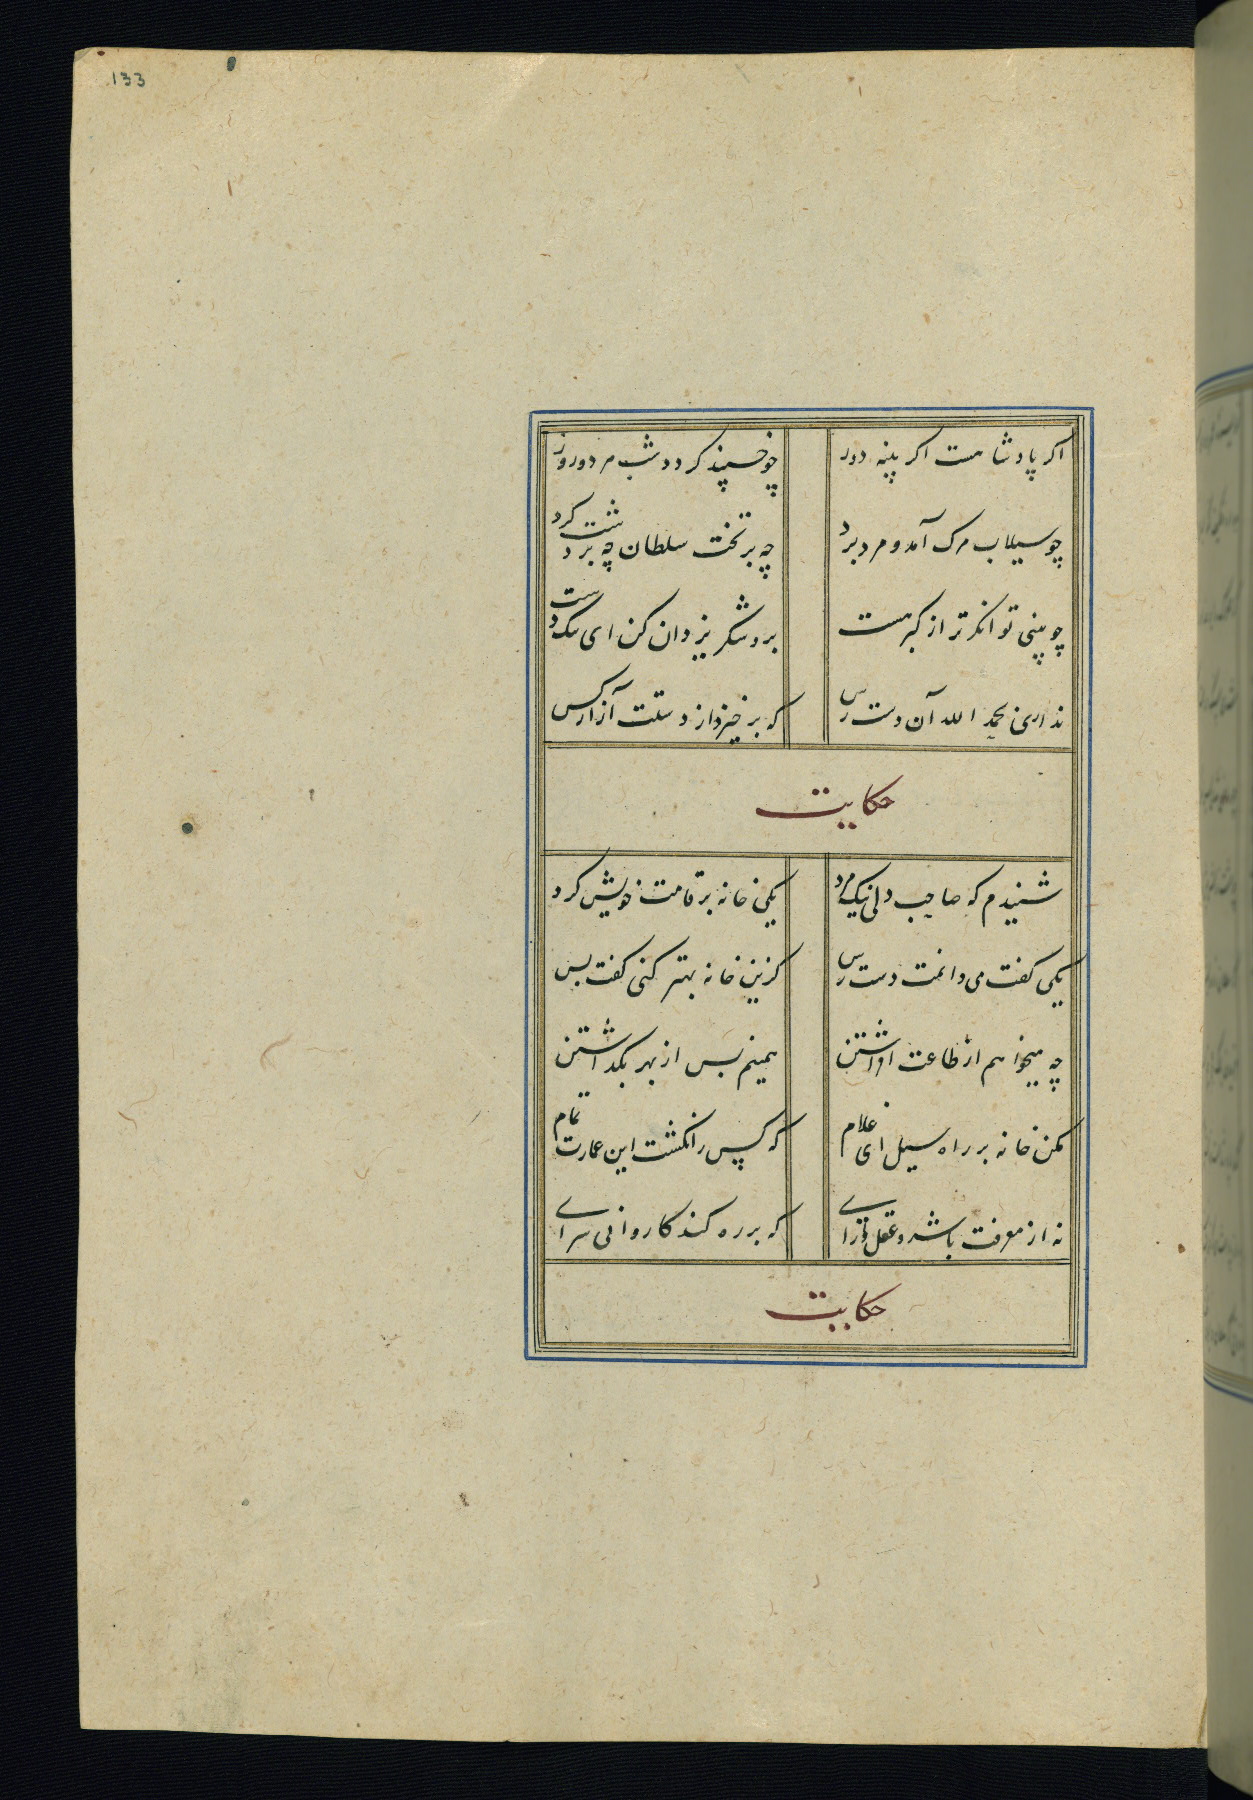 133
اکر پادشاهست اکر پینه دوز چو خسپند کردد شب مرد و روز
چو سیلاب مرک آمد و مرد برد چه بر تخت سلطان چه بر دشت کرد
چو بینی توانکر تر از کبر مست برو شکر یزدان کن ای تنک دست
نداری بحمد الله آن دست رس که برخیزد از دستت آزار کس
حکایت
شنیدم که صاحب دلی نیک مرد یکی خانه بر قامت خویش کرد
یکی کفت می دانمت دست رس کزین خانه بهتر کنی کفت بس
چه میخواهم از طاعت افراشتن همینم بس از بهر بکذاشتن
مکن خانه بر راه سیل ای غلام که کس را نکشت این عمارت تمام
نه از معرفت باشد و عقل و رای که بر ره کند کاروانی سرای
حکایت